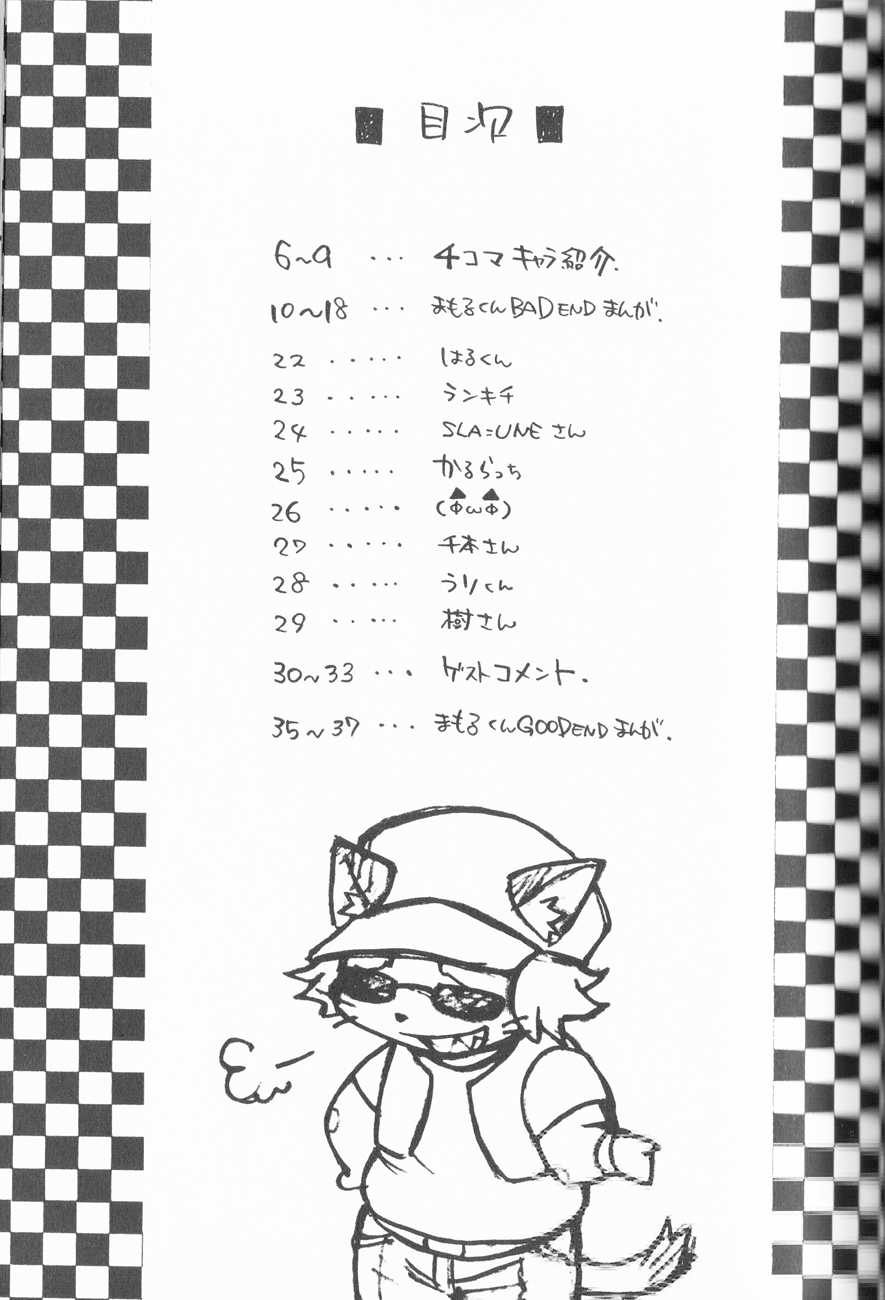 ■ 目次 ■
6~9 ... 4コマキャラ紹介.
10~18 ... まもるくんBAD ENDまんが.
22 ..... はるくん
23 ..... ランキチ
24 ..... SLA=UNEさん
25 ..... かるらっち
26 ..... (ΦωΦ)
27 ..... 千本さん
28 ..... うりくん
29 ..... 樹さん
30~33 ... ゲストコメント.
35~37 ... まもるくんGOODENDまんが.